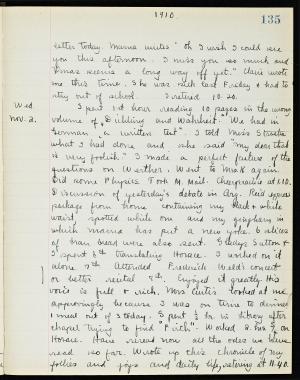 1910.
135
letter today. Mama writes "Oh I wish I could see
you this afternoon. I miss you so much and
Xmas seems a long way off yet." Clare wrote
me this time. She was sick last Friday & had to
stay out of school. I retired 10.20.
Wed
Nov. 2.
I spent 1st hour reading 10 pages in the wrong
volume of Dichtung und Wahrheit. We had in
German "a written test". I told Miss
what I had done and she said "my dear that
is very foolish." I made a perfect failure of the
questions on Werther. Went to M & R again.
Did some Physics. Took M. Mail. Chapel rather at 1.10
Discussion of yesterday's debate in Arg. Red. again
package from home containing my red & white
waist, spotted white one and my gingham in
which mama has put a new yoke. 6 slices
of bran bread were also sent. Gladys Sutton &
I spent 6th translating Horace. I worked on it
alone 7th. Attended Frederick Weld's concert
or better recital 7th. Enjoyed it greatly. His
voice is full & rich. Mrs. Curtis looked at me
approvingly because I was on time to dinner
1 meal out of 3 today. I spent ½ hr in library after
chapel trying to find "Pich". Worked 2 hrs ½ on
Horace. Have reread now all the odes we have
read so far. Wrote up this chronicle of my
follies and joys and daily life, retiring at 11.40.